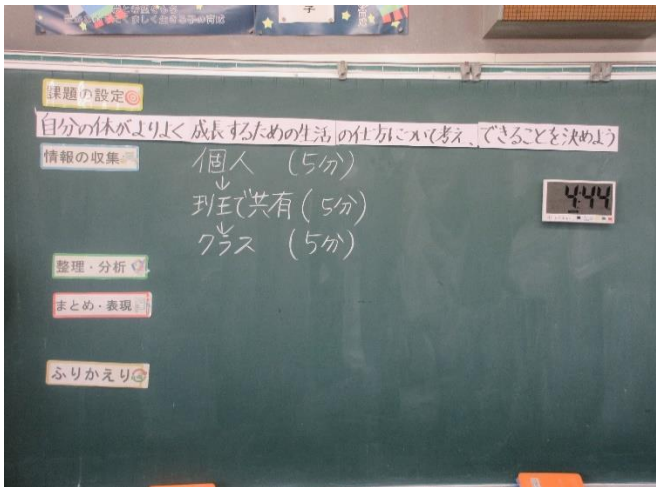 学
課題の設定
自分の体がよりよく成長するための生活の仕方について考え、できることを決めよう
情報の収集
個人 (5分)
↓
班で共有(5分)
↓
クラス (5分)
4:44
整理・分析
まとめ・表現
ふりかえり